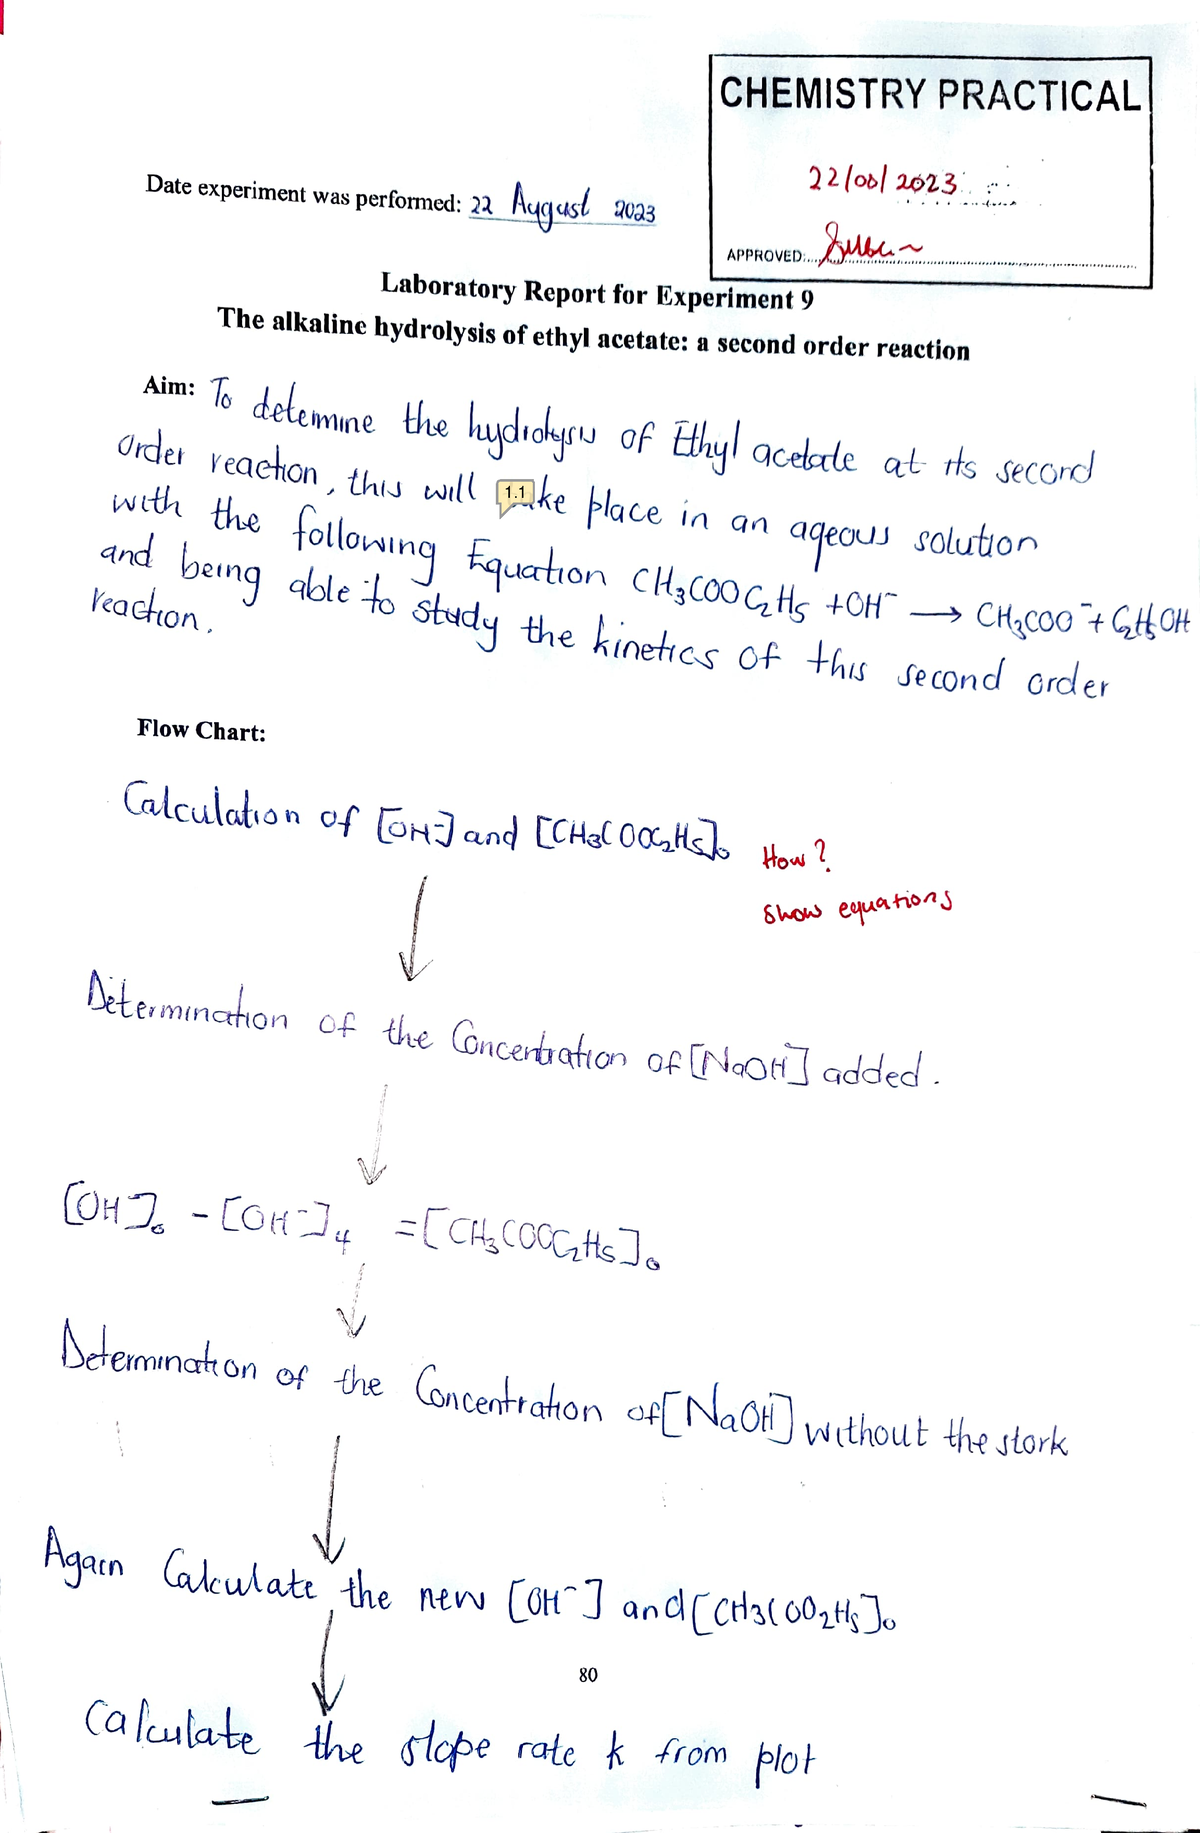 CHEMISTRY PRACTICAL
22/08/2023
APPROVED:
Date experiment was performed: 22 August 2023
Laboratory Report for Experiment 9
The alkaline hydrolysis of ethyl acetate: a second order reaction
Aim: To determine the hydrolysis of Ethyl acetate at its second
order reaction, this will take place in an aqeous solution
1.1
with the following Equation CH₃COOC₂H₅ + OH⁻ → CH₃COO⁻ + C₂H₅OH
and being able to study the kinetics of this second order
reaction.
Flow Chart:
Calculation of [OH⁻] and [CH3COOC₂H5]₀
How?
Show equations
Determination of the Concentration of [NaOH] added.
[OH⁻]₀ - [OH⁻]₄ = [CH₃COOC₂H5]₀
Determination of the Concentration of [NaOH] without the stork
Again Calculate the new [OH⁻] and [CH3COO₂H5]₀
80
Calculate the slope rate k from plot